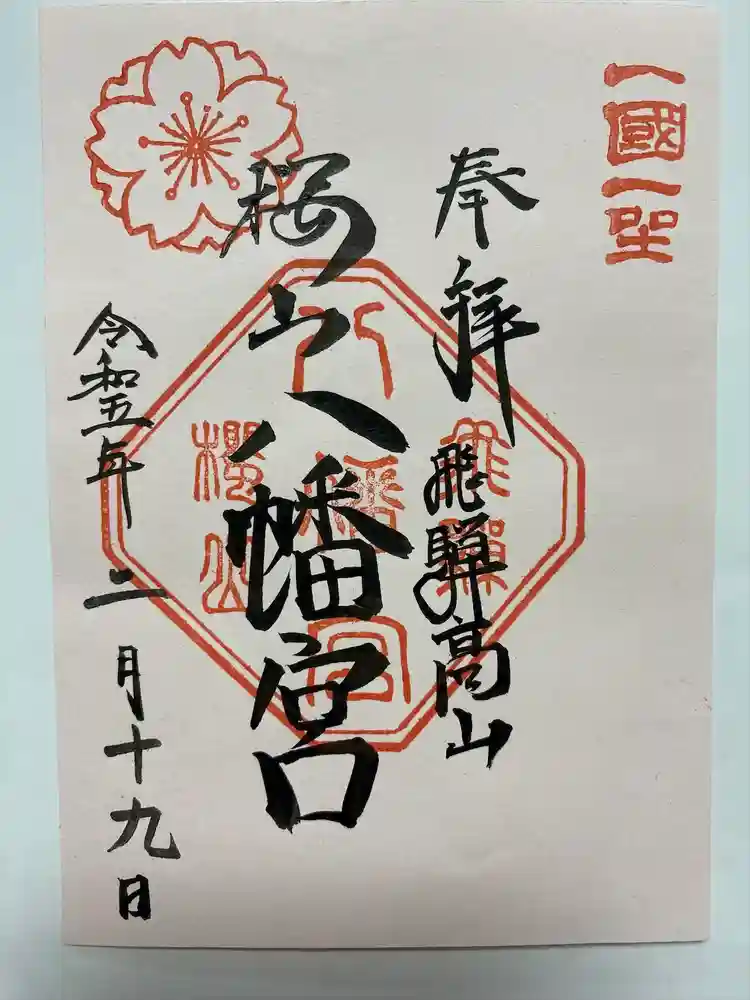 一國一社
奉拝
飛騨高山
桜山八幡宮
飛騨
八幡宮
櫻山
令和五年二月十九日